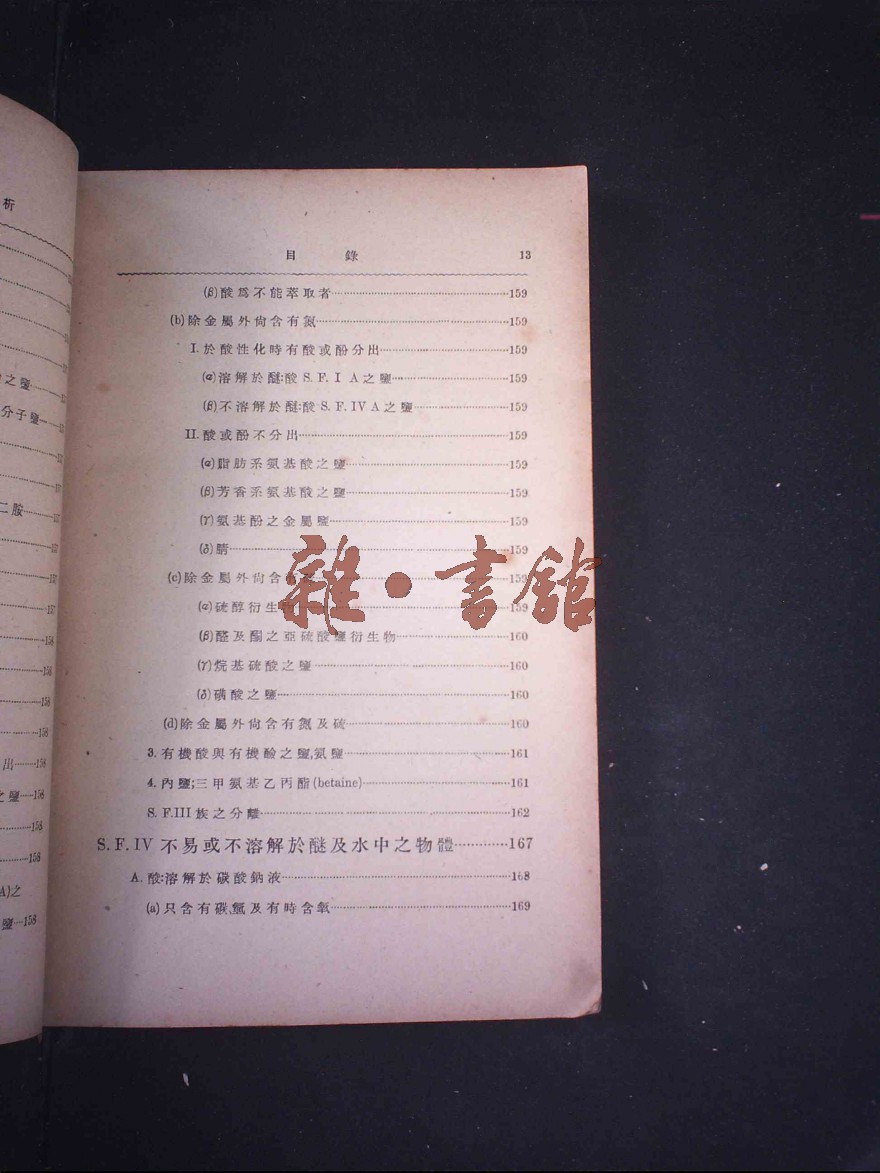 析
之鹽
分子鹽
二胺
157
157
157
158
158
158
158
出……158
之鹽……158
158
158
A)之
鹽…158
目 錄 13
(β)酸爲不能萃取者……159
(b)除金屬外尙含有氮……159
I.於酸性化時有酸或酚分出……159
(α)溶解於醚:酸S.F.I A之鹽……159
(β)不溶解於醚:酸S.F.IV A之鹽……159
II.酸或酚不分出……159
(α)脂肪系氨基酸之鹽……159
(β)芳香系氨基酸之鹽……159
(γ)氨基酚之金屬鹽……159
(δ)腈……159
(c)除金屬外尙含……159
(α)硫醇衍生物……159
(β)醛及酮之亞硫酸鹽衍生物……160
(γ)烷基硫酸之鹽……160
(δ)磺酸之鹽……160
(d)除金屬外尙含有氮及硫……160
3.有機酸與有機鹼之鹽,氨鹽……161
4.內鹽;三甲氨基乙丙酯(betaine)……161
S. F.III族之分離……162
S. F. IV 不易或不溶解於醚及水中之物體……167
A.酸:溶解於碳酸鈉液……168
(a)只含有碳,氫及有時含氧……169
雜·書館